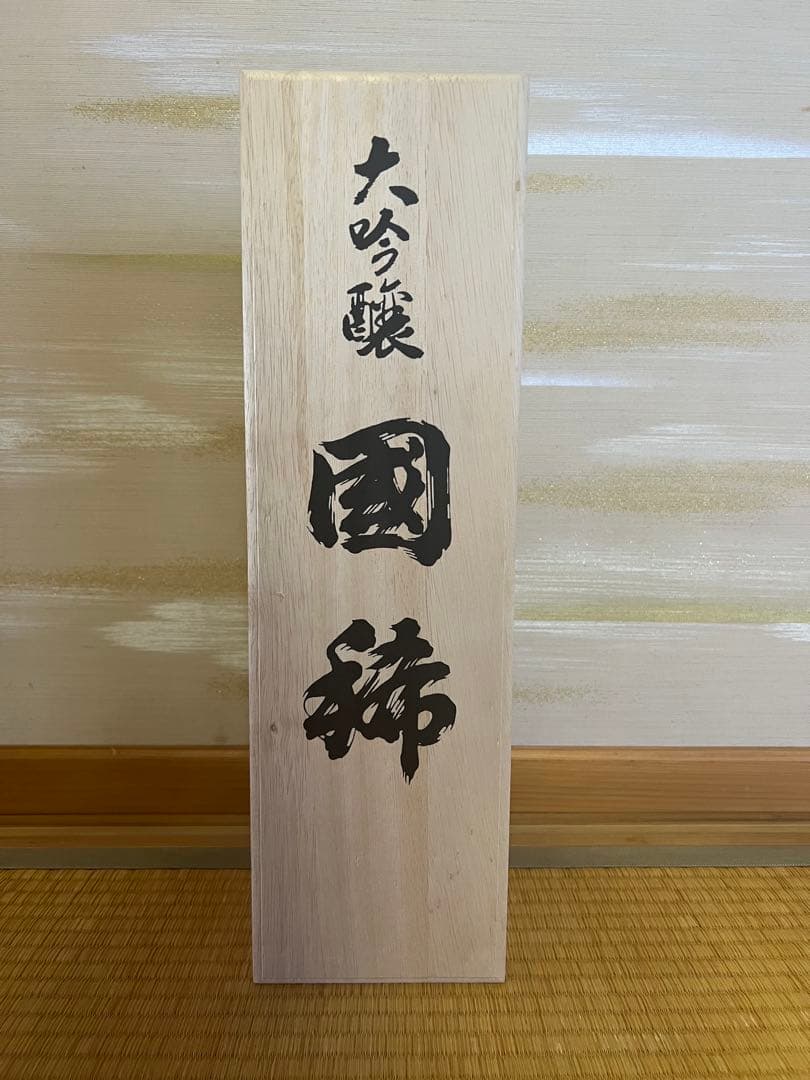 大吟醸
國稀